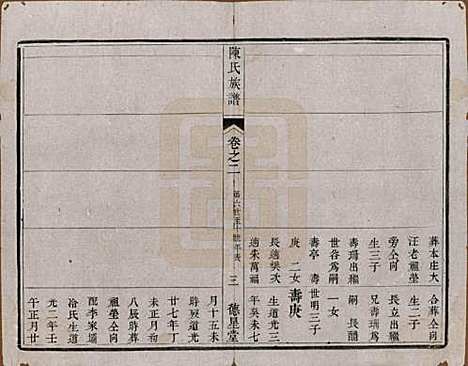 葬本庄大
汪老祖塋
旁仝向
生三子
壽瑪出繼
世谷爲嗣
壽亭
庚 二女
長適樊次
適朱萬福
合葬仝向
生二子
長立出嗣
兄壽瑞爲
嗣 長歸
一女
壽世明三子
壽庚
生道光三
年癸未七
陳氏族譜
卷之二
三
德星堂
月十五未
時歿道光
廿七年丁
未正月初
八辰時葬
祖塋仝向
配李家墕
冷氏生道
光二年壬
午正月廿